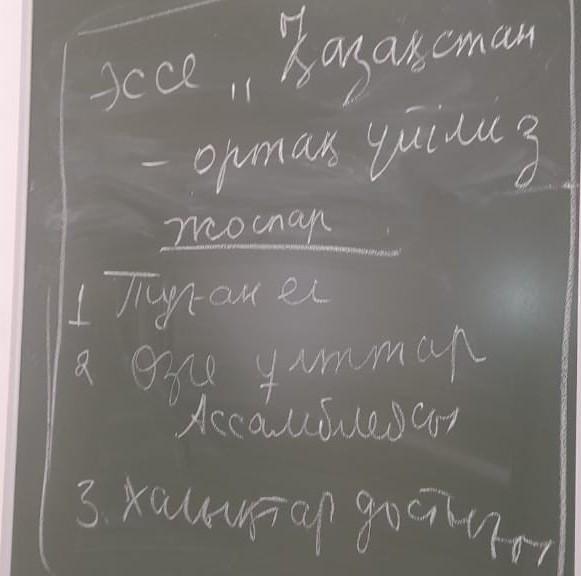 Эссе „Қазақстан
– ортақ үйіміз
жоспар
1 Туған ел
2 Өзге ұлттар
Ассамблеясы
3. Халықтар достығы